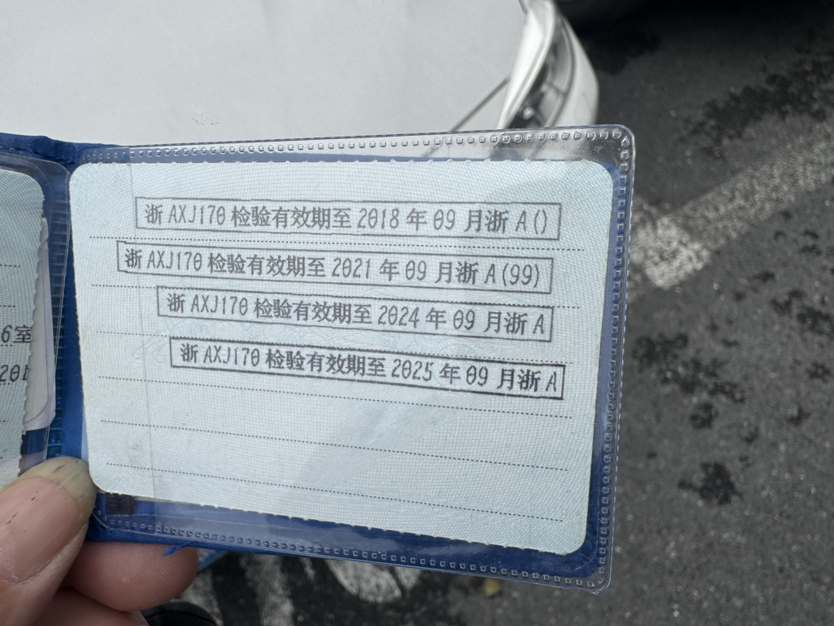 浙AXJ170检验有效期至2018年09月浙A()
浙AXJ170检验有效期至2021年09月浙A(99)
浙AXJ170检验有效期至2024年09月浙A
浙AXJ170检验有效期至2025年09月浙A
6室
201